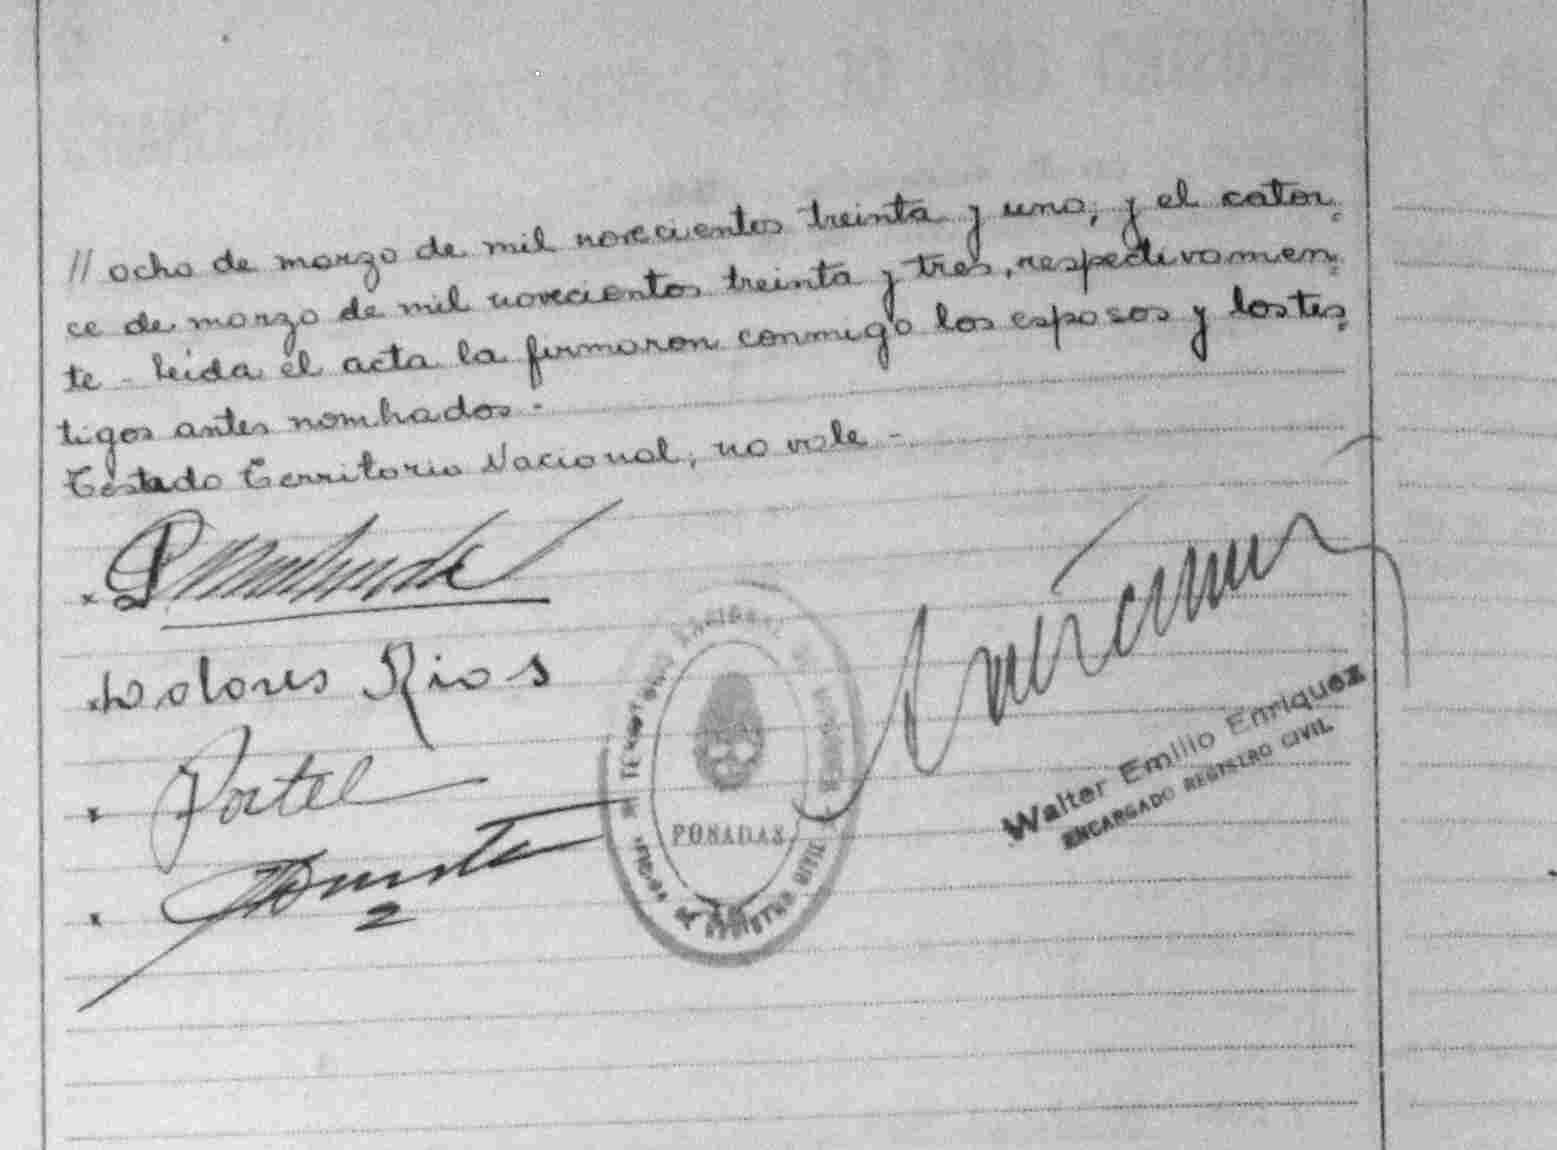 // ocho de marzo de mil novecientos treinta y uno, y el cator=
ce de marzo de mil novecientos treinta y tres, respectivamen=
te - leida el acta la firmaron conmigo los esposos y los tes=
tigos antes nombrados -
Testado Territorio Nacional, no vale -
Dolores Rios
Portel
TERRITORIO NACIONAL DE MISIONES
POSADAS
REGISTRO CIVIL
Walter Emilio Enriquez
ENCARGADO REGISTRO CIVIL